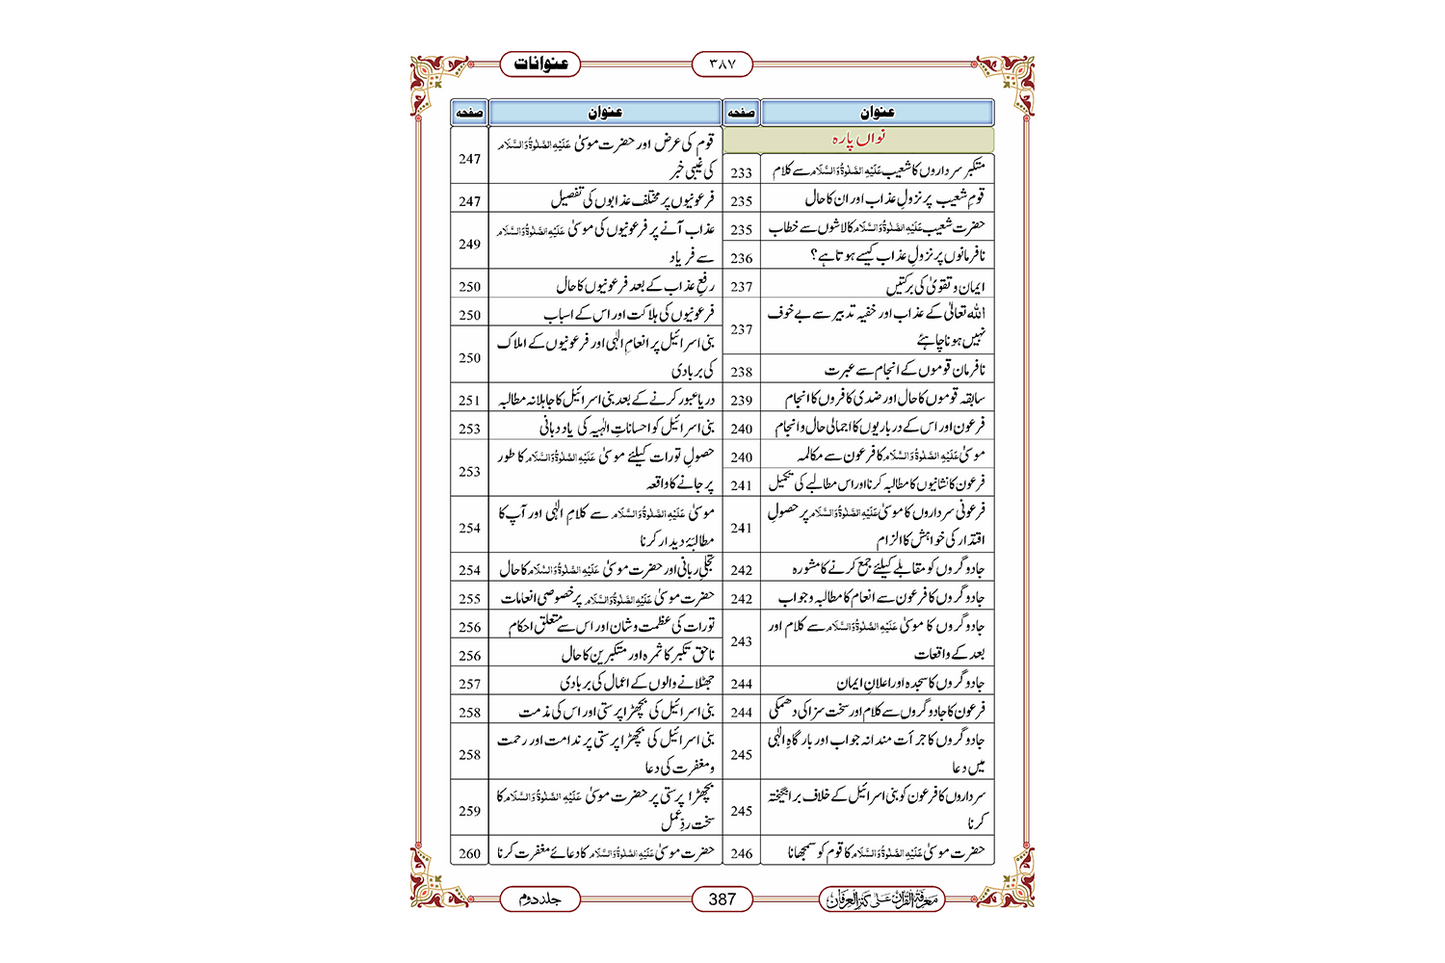 عنوانات
۳۸۷
عنوان
صفحہ
نواں پارہ
متکبر سرداروں کا شعیب عَلَیْہِ الصَّلٰوۃُ وَالسَّلَام سے کلام
233
قومِ شعیب پر نزولِ عذاب اور ان کا حال
235
حضرت شعیب عَلَیْہِ الصَّلٰوۃُ وَالسَّلَام کا لاشوں سے خطاب
235
نافرمانوں پر نزولِ عذاب کیسے ہوتا ہے؟
236
ایمان و تقویٰ کی برکتیں
237
اللہ تعالیٰ کے عذاب اور خفیہ تدبیر سے بے خوف
نہیں ہونا چاہئے
237
نافرمان قوموں کے انجام سے عبرت
238
سابقہ قوموں کا حال اور ضدی کافروں کا انجام
239
فرعون اور اس کے درباریوں کا اجمالی حال و انجام
240
موسیٰ عَلَیْہِ الصَّلٰوۃُ وَالسَّلَام کا فرعون سے مکالمہ
240
فرعون کا نشانیوں کا مطالبہ کرنا اور اس مطالبے کی تکمیل
241
فرعونی سرداروں کا موسیٰ عَلَیْہِ الصَّلٰوۃُ وَالسَّلَام پر حصولِ
اقتدار کی خواہش کا الزام
241
جادوگروں کو مقابلے کیلئے جمع کرنے کا مشورہ
242
جادوگروں کا فرعون سے انعام کا مطالبہ و جواب
242
جادوگروں کا موسیٰ عَلَیْہِ الصَّلٰوۃُ وَالسَّلَام سے کلام اور
بعد کے واقعات
243
جادوگروں کا سجدہ اور اعلانِ ایمان
244
فرعون کا جادوگروں سے کلام اور سخت سزا کی دھمکی
244
جادوگروں کا جرأت مندانہ جواب اور بارگاہِ الٰہی
میں دعا
245
سرداروں کا فرعون کو بنی اسرائیل کے خلاف برانگیختہ
کرنا
245
حضرت موسیٰ عَلَیْہِ الصَّلٰوۃُ وَالسَّلَام کا قوم کو سمجھانا
246
عنوان
صفحہ
قوم کی عرض اور حضرت موسیٰ عَلَیْہِ الصَّلٰوۃُ وَالسَّلَام
کی غیبی خبر
247
فرعونیوں پر مختلف عذابوں کی تفصیل
247
عذاب آنے پر فرعونیوں کی موسیٰ عَلَیْہِ الصَّلٰوۃُ وَالسَّلَام
سے فریاد
249
رفعِ عذاب کے بعد فرعونیوں کا حال
250
فرعونیوں کی ہلاکت اور اس کے اسباب
250
بنی اسرائیل پر انعامِ الٰہی اور فرعونیوں کے املاک
کی بربادی
250
دریا عبور کرنے کے بعد بنی اسرائیل کا جاہلانہ مطالبہ
251
بنی اسرائیل کو احساناتِ الٰہیہ کی یاددہانی
253
حصولِ تورات کیلئے موسیٰ عَلَیْہِ الصَّلٰوۃُ وَالسَّلَام کا طور
پر جانے کا واقعہ
253
موسیٰ عَلَیْہِ الصَّلٰوۃُ وَالسَّلَام سے کلامِ الٰہی اور آپ کا
مطالبۂ دیدار کرنا
254
تجلیِ ربانی اور حضرت موسیٰ عَلَیْہِ الصَّلٰوۃُ وَالسَّلَام کا حال
254
حضرت موسیٰ عَلَیْہِ الصَّلٰوۃُ وَالسَّلَام پر خصوصی انعامات
255
تورات کی عظمت و شان اور اس سے متعلق احکام
256
ناحق تکبر کا ثمرہ اور متکبرین کا حال
256
جھٹلانے والوں کے اعمال کی بربادی
257
بنی اسرائیل کی بچھڑا پرستی اور اس کی مذمت
258
بنی اسرائیل کی بچھڑا پرستی پر ندامت اور رحمت
و مغفرت کی دعا
258
بچھڑا پرستی پر حضرت موسیٰ عَلَیْہِ الصَّلٰوۃُ وَالسَّلَام کا
سخت ردِّ عمل
259
حضرت موسیٰ عَلَیْہِ الصَّلٰوۃُ وَالسَّلَام کا دعائے مغفرت کرنا
260
معرفۃ القرآن علٰی کنز العرفان
387
جلد دوم